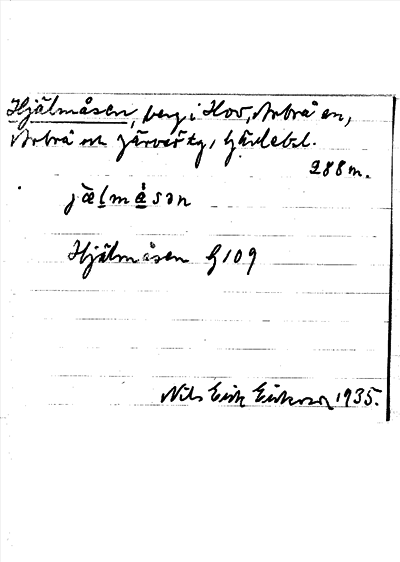 Hjälmåsen, berg i Hov, Arbrå sn,
Arbrå och Järvsö tg, Gävlebl.
288 m.
jälmåsən
Hjälmåsen G 109
Nils Erik Eriksson 1935.